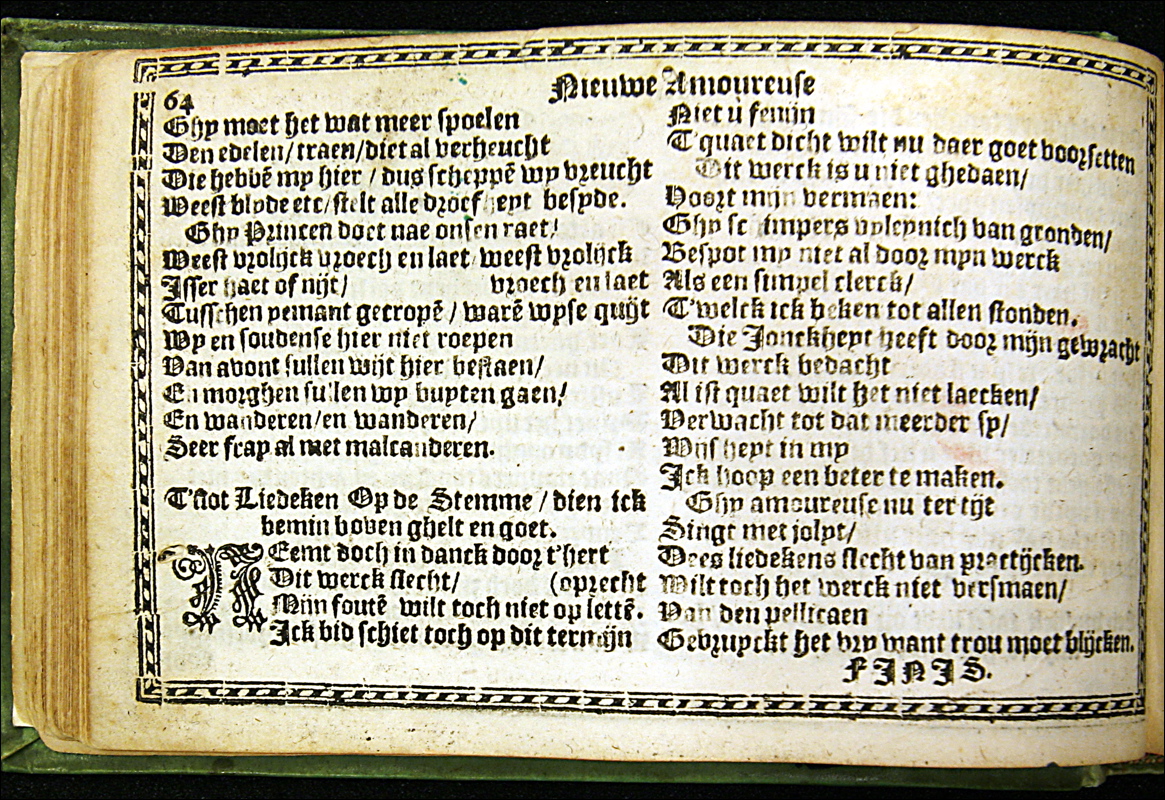 Nieuwe Amoureuse
64
Ghy moet het wat meer spoelen
Den edelen/traen/diet al verheucht
Die hebbē my hier / dus scheppē wy vreucht
Weest blyde etc/stelt alle droefheyt besyde.
Ghy Princen doet nae onsen raet/
Weest vrolijck vroech en laet weest vrolijck
Isser haet of nijt/ vroech en laet
Tusschen yemant getropē / warē wyse quijt
Wy en soudense hier niet roepen
Van avont sullen wijt hier bestaen/
En morghen sullen wy buyten gaen/
En wanderen/en wanderen/
Seer frap al met malcanderen.
T'slot Liedeken Op de Stemme / dien ick
bemin boven ghelt en goet.
NEemt doch in danck door t'hert
Dit werck slecht/ (oprecht
Mijn foutē wilt toch niet op lettē.
Ick bid schiet toch op dit termijn
Niet ù fenijn
T'quaet dicht wilt nu daer goet voorsetten
Dit werck is u niet ghedaen/
Voort mijn vermaen:
Ghy schimpers vyleynich van gronden/
Bespot my niet al door myn werck
Als een simpel clerck/
T'welck ick beken tot allen stonden.
Die Jonckheyt heeft door mijn gewracht
Dit werck bedacht
Al ist quaet wilt het niet laecken/
Verwacht tot dat meerder sy/
Wijsheyt in my
Ick hoop een beter te maken.
Ghy amoureuse nu ter tijt
Singt met jolyt/
Dees liedekens slecht van practijcken.
Wilt toch het werck niet versmaen/
Van den pellicaen
Gebruyckt het vry want trou moet blijcken.
FINIS.